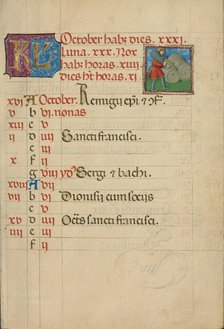 KL October habꝫ dies. xxxi.
Luna. xxx. Nox
habꝫ horas. xiiii.
dies hꝫ horas. xi
xvi A October. Remigii epi et cf.
v b vi. nonas
xiii c v
ii d iiii Sancti francisci.
e iii
x f ii
g viii ydꝰ Sergi et bachi.
xviii A vii
vii b vi Dionisii cum sociis
c v
xv d iiii Octꝭ sancti francisci.
iiii e iii
f ii